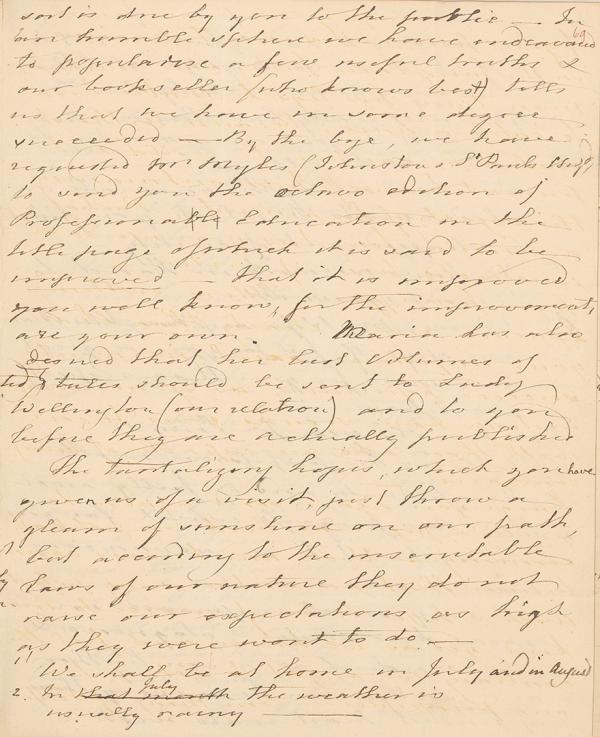 sort is due by you to the public — In
69
our humble sphere we have endeavored
to popularise a few useful truths &
our bookseller (who knows best) tells
us that we have in some degree
succeeded — By the bye, we have
requested Mr Myles (Johnstons St Pauls
to send you the octavo edition of
Professional Education in the
title page of which it is said to be
improved — that it is improved
you well know, for the improvements
are your own. Maria has also
desired that her last volumes of
tales should be sent to Lady
Wellington (our relation) and to you
before they are actually published
The tantalizing hopes, which you have
given us of a visit, just throw a
gleam of sunshine on our path,
but according to the inscrutable
laws of our nature they do not
raise our expectations as high
as they were wont to do —
We shall be at home in July and in August
2. In that month July the weather is
usually rainy —